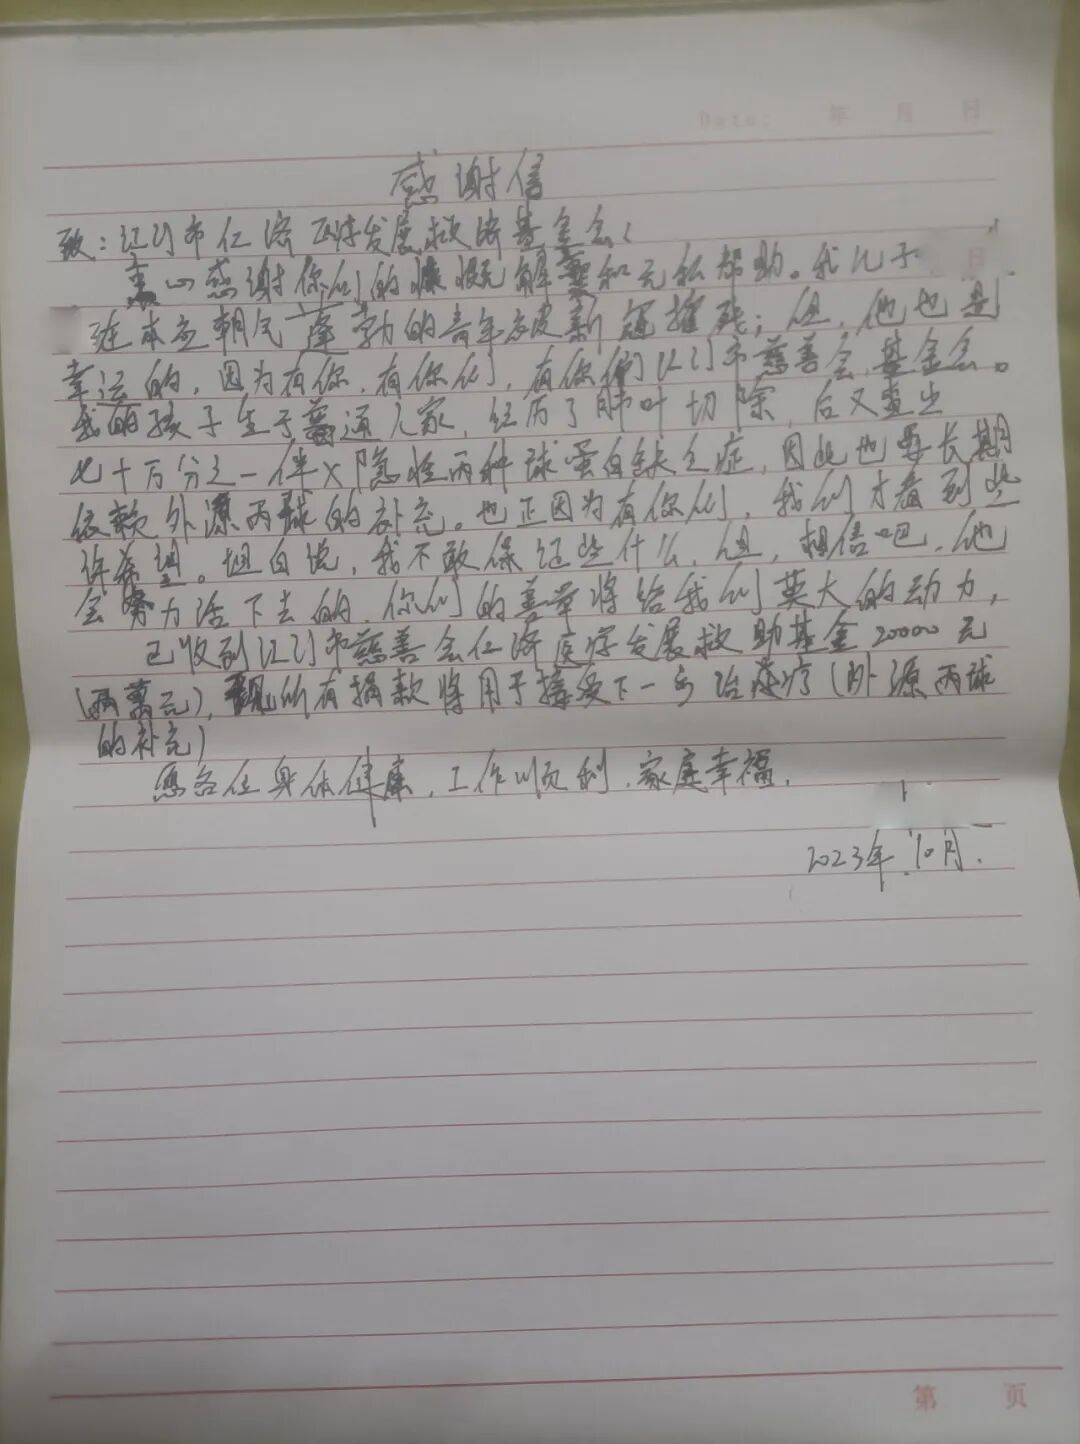 Date: 年 月 日
感谢信
致:江门市仁济医疗发展救济基金会:
衷心感谢你们的慷慨解囊和无私帮助。我儿子
在本应朝气蓬勃的青年被新冠摧残;但,他也是
幸运的,因为有你,有你们,有你们江门市慈善会基金会。
我的孩子生于普通人家,经历了肺叶切除,后又查出
七十万分之一伴X隐性丙种球蛋白缺乏症,因此也要长期
依赖外源丙球的补充。也正因为有你们,我们才看到些
许希望。坦白说,我不敢保证些什么,但,相信吧,他
会努力活下去的,你们的善举将给我们莫大的动力,
已收到江门市慈善会仁济医疗发展救助基金20000元
(两萬元),现所有捐款将用于接受下一步治疗(外源丙球
的补充)
愿各位身体健康,工作顺利,家庭幸福.
2023年10月.
第 页